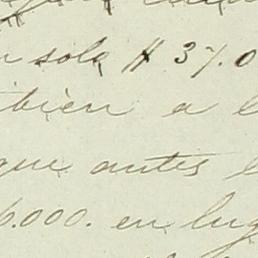 n sola $ 37.0
bien a l
que antes l
6.000. en lug